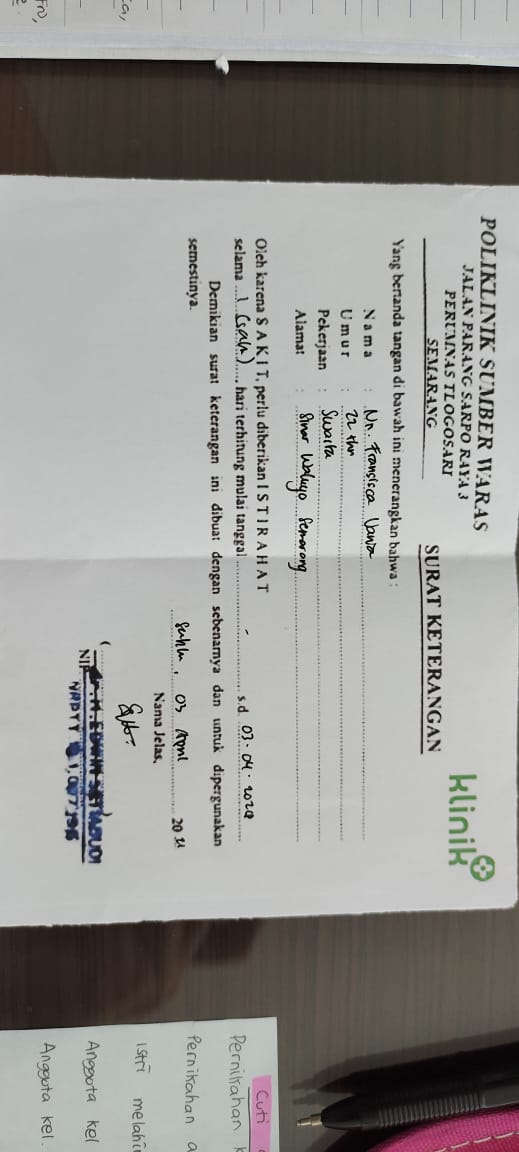 POLIKLINIK SUMBER WARAS
JALAN PARANG SARPO RAYA 3
PERUMNAS TLOGOSARI
SEMARANG
klinik
SURAT KETERANGAN
Yang bertanda tangan di bawah ini menerangkan bahwa :
Nama : Nn. Fransisca
Umur : 22 thn
Pekerjaan : Swasta
Alamat : Sinar Waluyo Semarang
Oleh karena S A K I T, perlu diberikan I S T I R A H A T
selama 1 (satu) hari terhitung mulai tanggal - s.d. 03.04.2024
Demikian surat keterangan ini dibuat dengan sebenarnya dan untuk dipergunakan
semestinya.
03 April 20
Nama Jelas,
(
NIP
Cuti
Pernikahan
Pernikahan
istri
Anggota kel
Anggota kel.